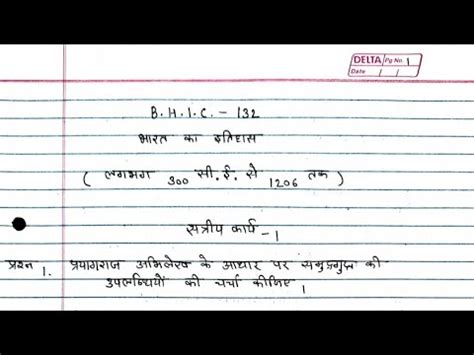 DELTA Pg No. 1
Date / /
B.H.I.C. - 132
भारत का इतिहास
( लगभग 300 सी.ई. से 1206 तक )
सत्रीय कार्य - 1
प्रश्न 1. प्रयागराज अभिलेख के आधार पर समुद्रगुप्त की
उपलब्धियों की चर्चा कीजिए।